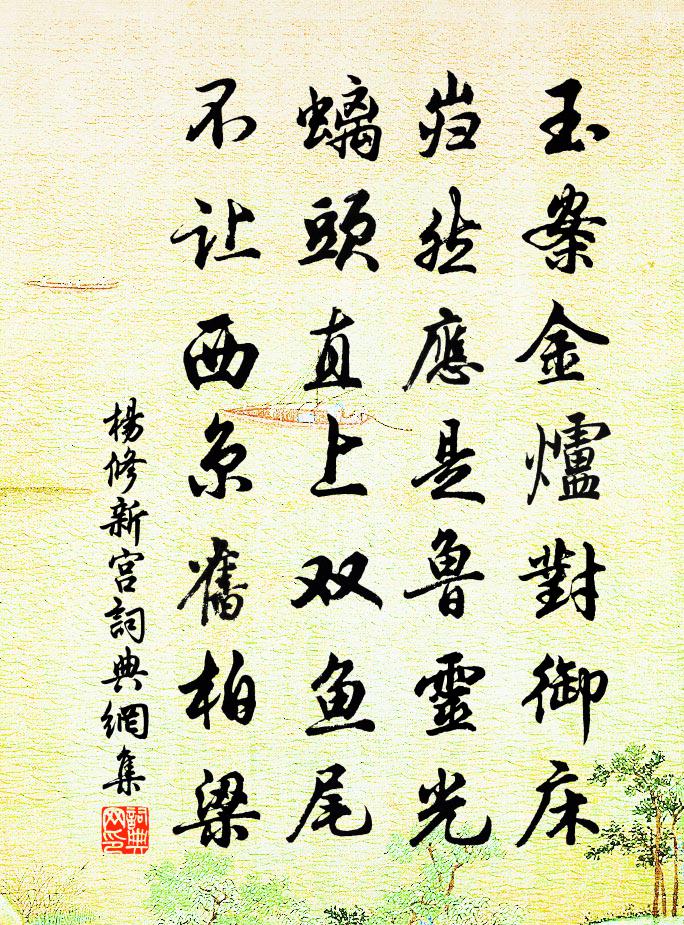 玉案金爐對御床
岿然應是魯靈光
螭頭直上双鱼尾
不让西京舊柏梁
楊修新宫詞典網集
詞典网印